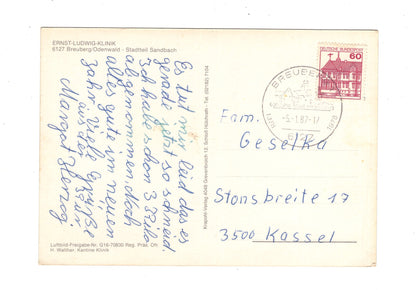 ERNST-LUDWIG-KLINIK
6127 Breuberg/Odenwald - Stadtteil Sandbach
Es tut mir leid das es
gerade jetzt so schneid.
Ich habe schon 3 Kilo
abgenommen. Noch
alles gute im neuen
Jahr. Viele Grüße
aus der Kur
Margot Herzog
Luftbild-Freigabe Nr. G16-70800 Reg. Präs. Ofr.
H. Walther, Kantine Klinik
Krapohl-Verlag 4048 Grevenbroich 12, Schloß Hülchrath - Tel. (02182) 7104
DEUTSCHE BUNDESPOST
60
BREUBERG
-5.-1.87-17
6127
Fam.
Geselka
Stonsbreite 17
3500 Kassel